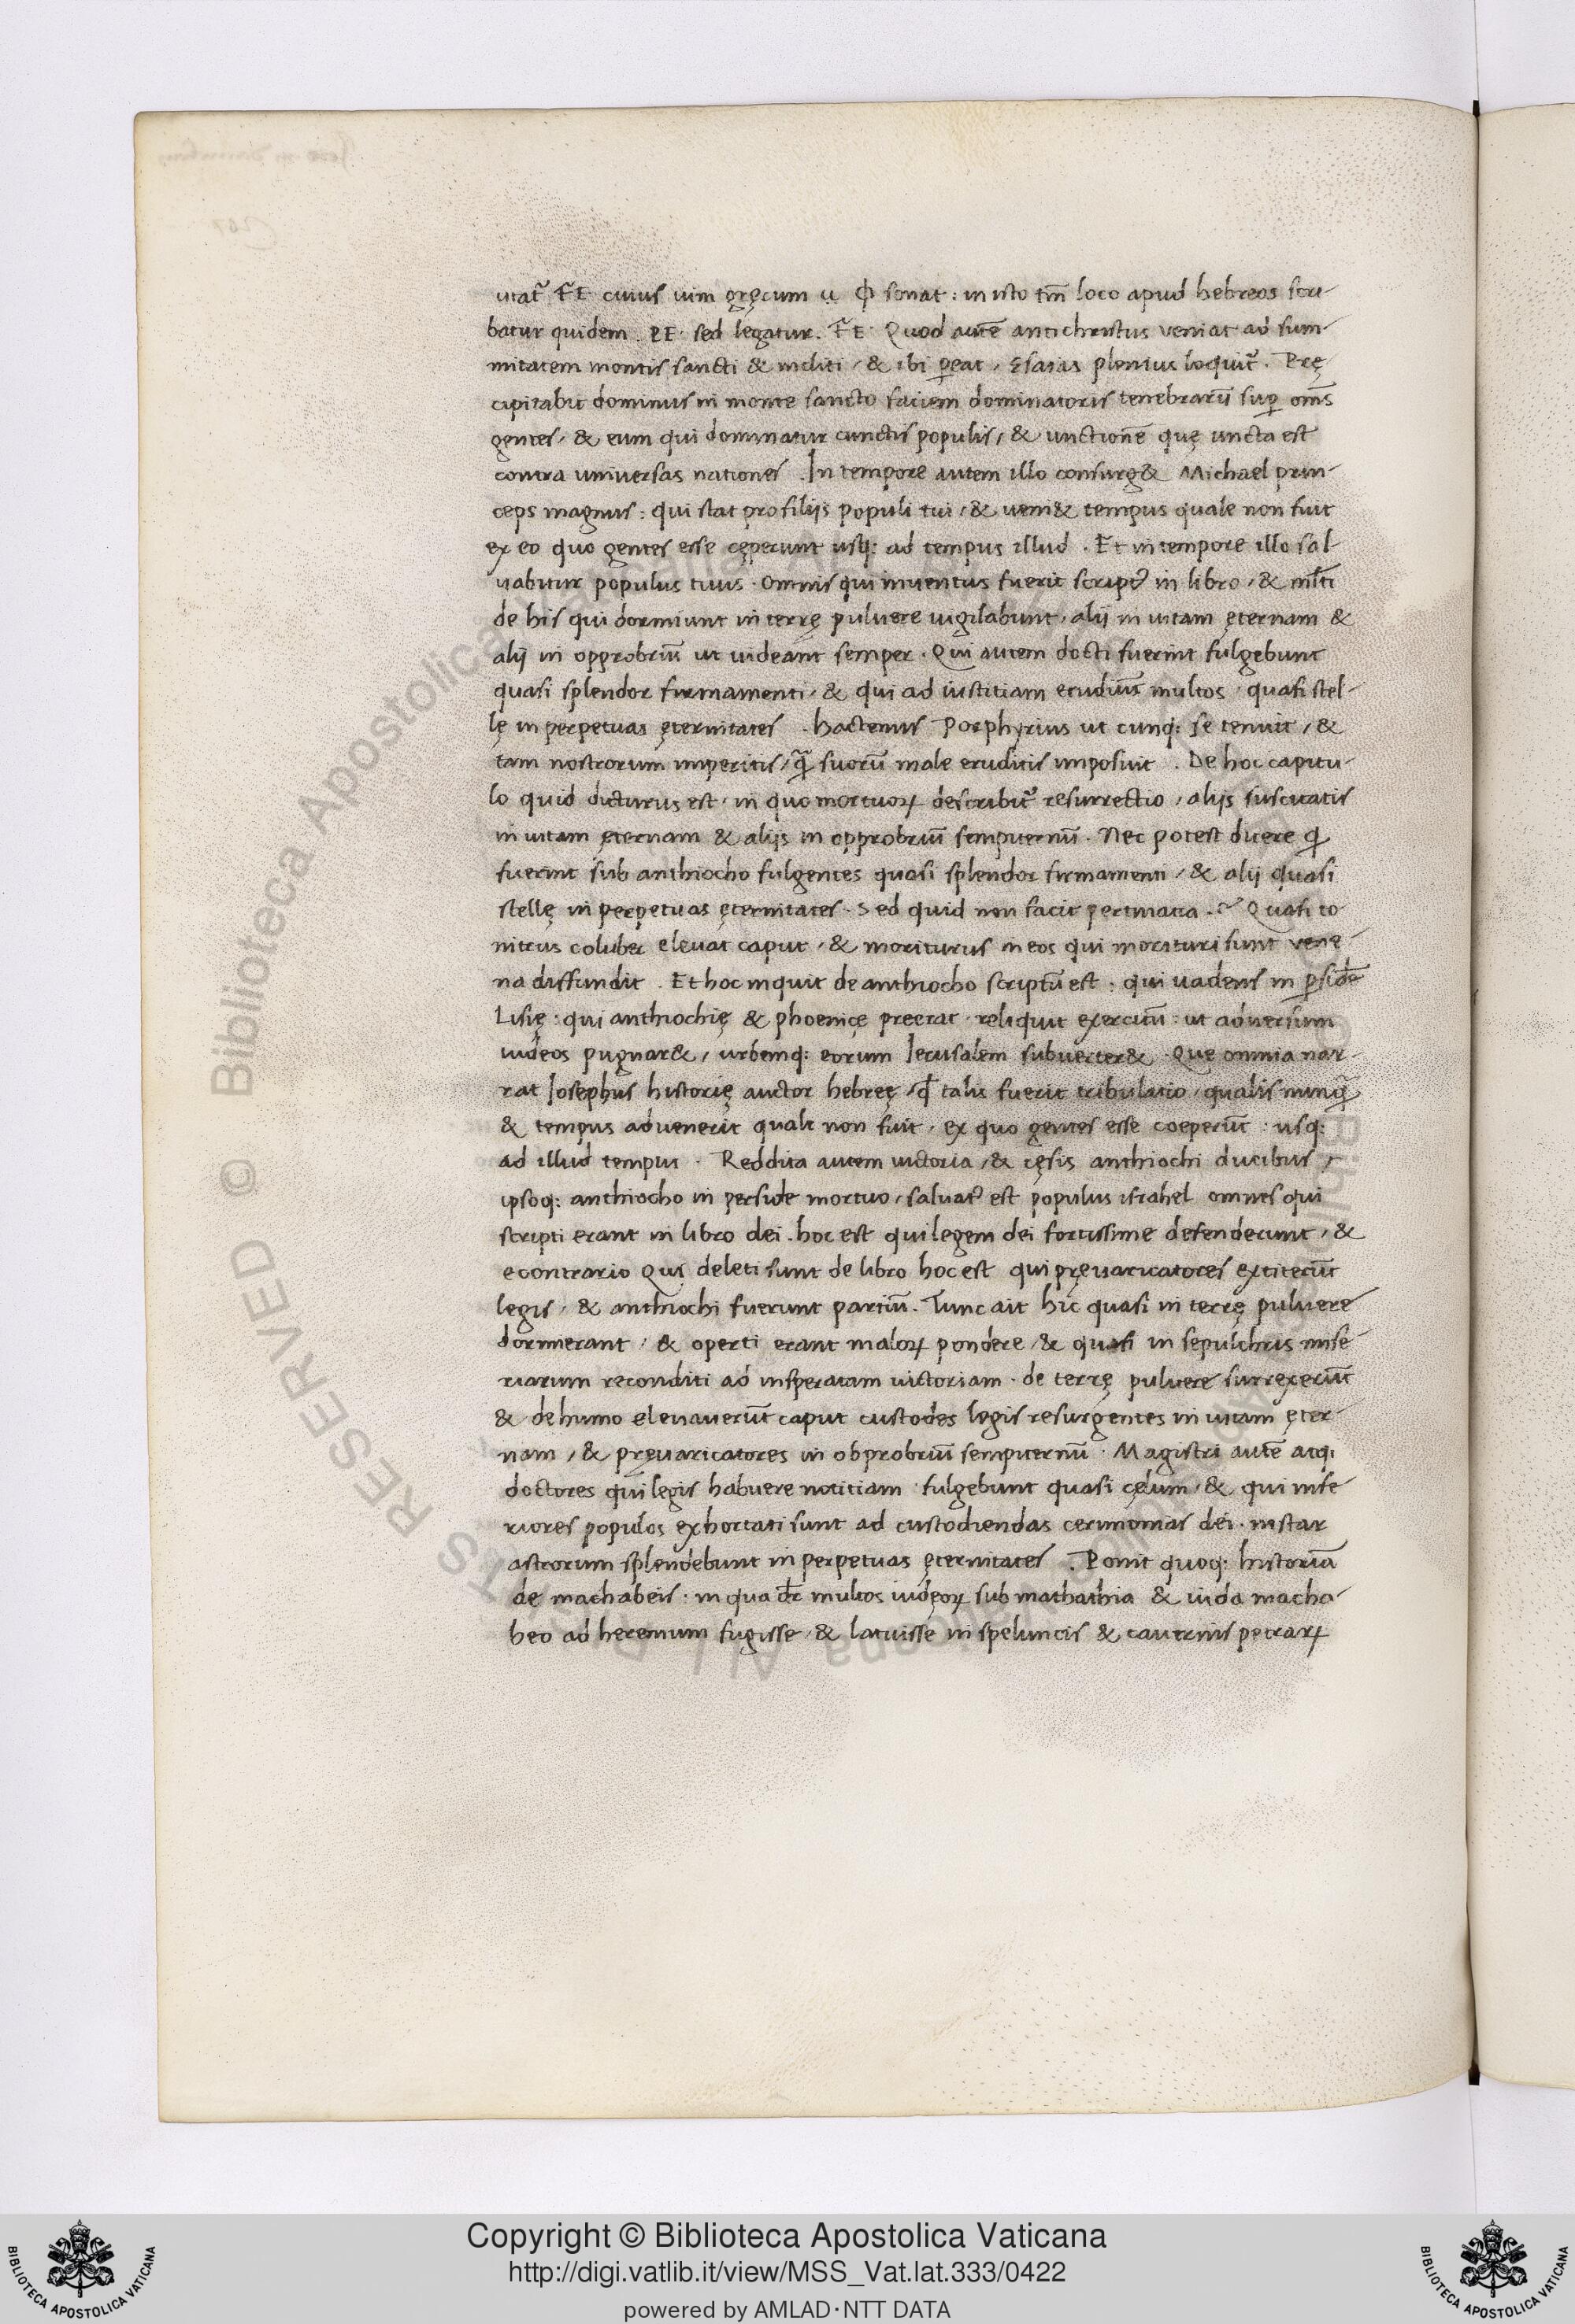 uitat᷑ FE cuius uim gręcum u Φ sonat : in isto tm̅ loco apud hebreos scri-
batur quidem . PE · sed legatur . FE · Quod autẽ antichristus veniat ad sum-
mitatem montis sancti & incliti / & ibi ꝑeat / Esaias plenius loquit᷑ . Prę
cipitabit dominus in monte sancto faciem dominatoris tenebrarũ suꝑ oms̃
gentes / & eum qui dominatur cunctis populis / & unctionẽ quę uncta est
contra universas nationes . In tempore autem illo consurg& Michael prin-
ceps magnus : qui stat pro filijs populi tui / & ueni& tempus quale non fuit
ex eo quo gentes esse cęperunt usq: ad tempus illud . Et in tempore illo sal-
uabitur populus tuus · omnis qui inuentus fuerit scriptꝰ in libro / & ml̃ti
de his qui dormiunt in terrę puluere uigilabunt / alij in uitam ęternam &
alij in opprobriũ ut uideant semper · Qui autem docti fuerint fulgebunt
quasi splendor firmamenti / & qui ad iustitiam erudiũt multos · quasi stel-
lę in perpetuas ęternitates . hactenus Porphyrius ut cunq: se tenuit / &
tam nostrorum imperitis / q̃ suorũ male eruditis imposuit . De hoc capitu-
lo quid dicturus est / in quo mortuoꝝ describit᷑ resurrectio / alijs suscitatis
in uitam ęternam & alijs in opprobriũ sempiternũ · Nec potest dicere q
fuerint sub anthiocho fulgentes quasi splendor firmamenti / & alij quasi
stellę in perpetuas ęternitates · Sed quid non facit pertinatia . Quasi co
nitrus coluber eleuat caput / & moriturus in eos qui morituri sunt vene-
na diffundit . Et hoc inquit de anthiocho scriptũ est : qui uadens in ꝑsidẽ
Lisię : qui anthiochię & phoenicę preerat · reliquit exercitũ : ut adversum
iudeos pugnar& / urbemq: eorum Ierusalem subuerter& · Que omnia nar-
rat Iosephus historię auctor hebreę / qđ talis fuerit tribulatio / qualis nunq̃
& tempus aduenerit quale non fuit / ex quo gentes esse coeperũt : usq:
ad illud tempus · Reddita autem uictoria / & cęsis anthiochi ducibus /
ipsoq: anthiocho in perside mortuo / saluatꝰ est populus israhel omnes qui
scripti erant in libro dei . hoc est qui legem dei fortissime defenderunt / &
econtrario Qui deleti sunt de libro hoc est qui pręuaricatores extiterũt
legis / & anthiochi fuerunt partiũ . Tunc ait hic quasi in terrę puluere
dormierant / & operti erant maloꝝ pondere / & quasi in sepulchris mise-
riarum reconditi ad insperatam uictoriam · de terrę puluere surrexerũt
& de humo eleuauerũt caput custodes legis resurgentes in uitam ęter-
nam / & pręuaricatores in obprobriũ sempiternũ · Magistri autẽ atq:
doctores qui legis habuere notitiam · fulgebunt quasi cęlum / & qui infe-
riores populos exhortati sunt ad custodiendas cerimonias dei · instar
astrorum splendebunt in perpetuas ęternitates . Ponit quoq: historiã
de machabeis : in qua dr̃ multos iudęoꝝ sub mathathia & iuda macha-
beo ad heremum fugisse / & latuisse in speluncis & cauernis petraꝝ
Copyright © Biblioteca Apostolica Vaticana
http://digi.vatlib.it/view/MSS_Vat.lat.333/0422
powered by AMLAD·NTT DATA